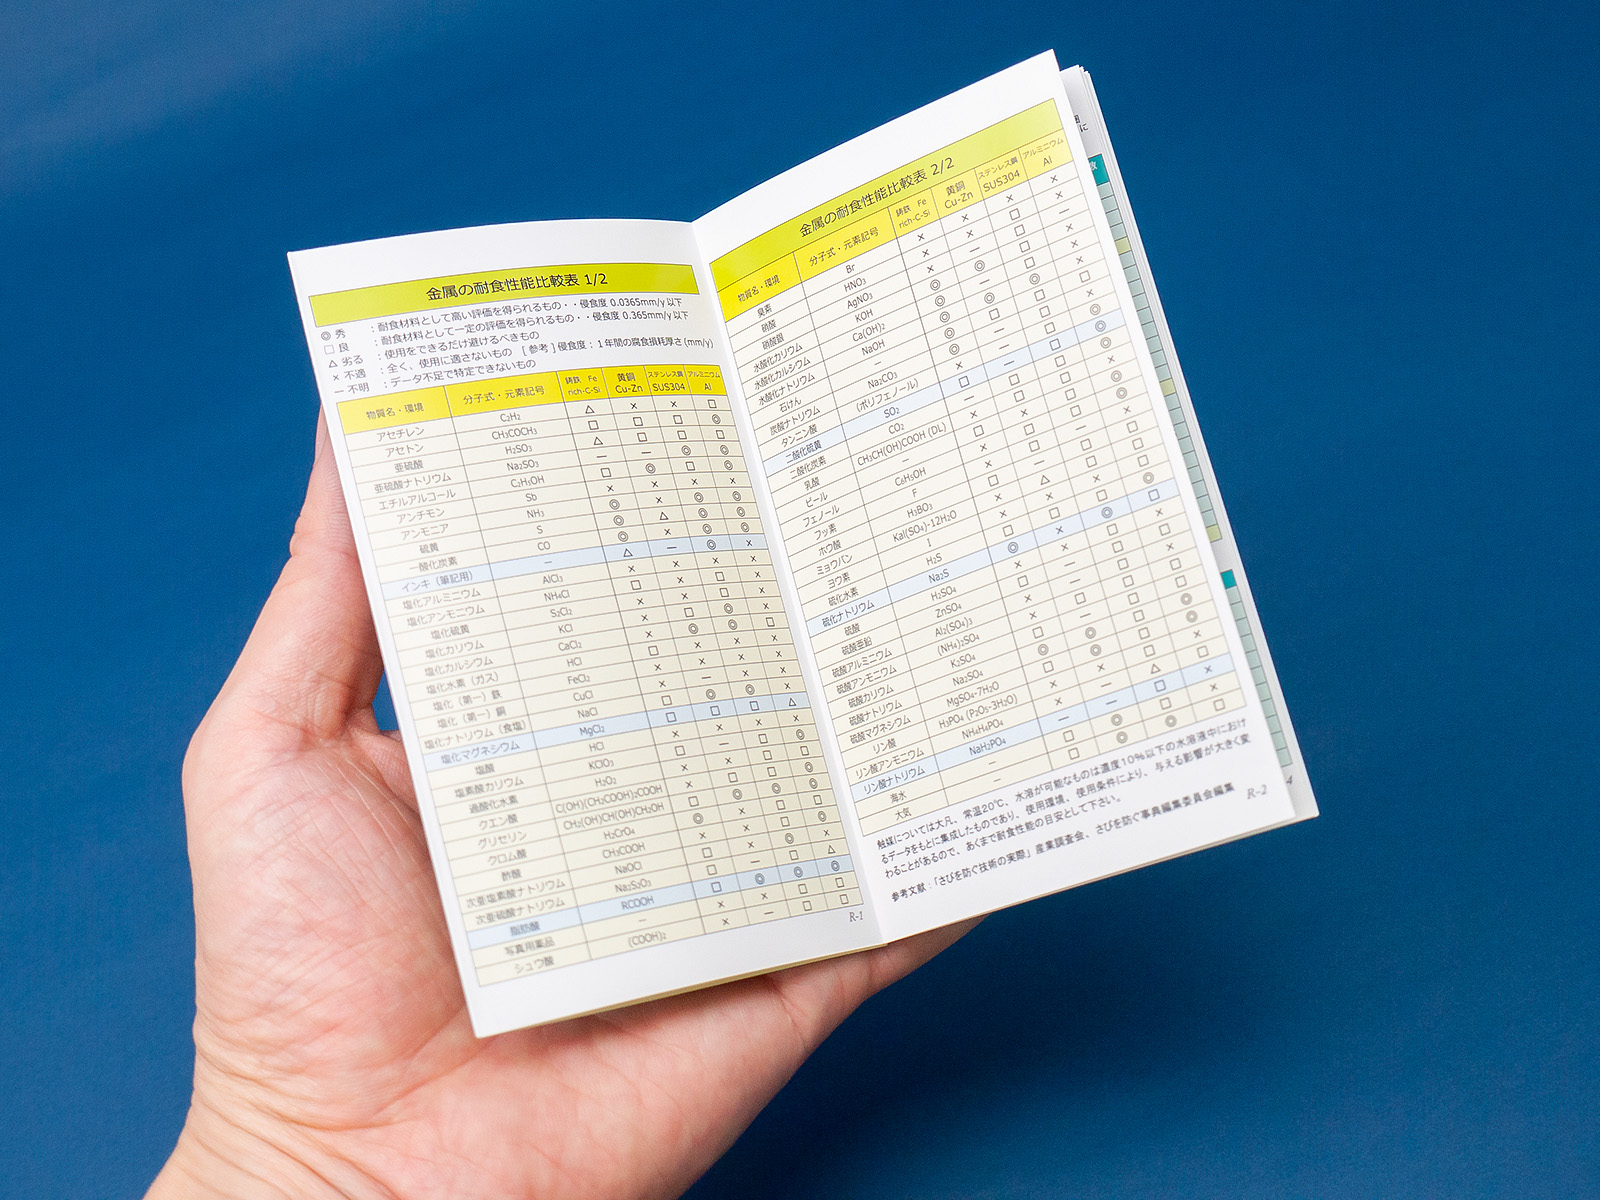 金属の耐食性能比較表 1/2
◎ 秀 ：耐食材料として高い評価を得られるもの・・侵食度 0.0365mm/y 以下
□ 良 ：耐食材料として一定の評価を得られるもの・・侵食度 0.365mm/y 以下
△ 劣る ：使用をできるだけ避けるべきもの
× 不適 ：全く、使用に適さないもの [参考]侵食度：1年間の腐食損耗厚さ(mm/y)
— 不明 ：データ不足で特定できないもの
物質名・環境 分子式・元素記号 鋳鉄 Fe rich-C-Si 黄銅 Cu-Zn ステンレス鋼 SUS304 アルミニウム Al
アセチレン C₂H₂ △ × × □
アセトン CH₃COCH₃ □ □ □ ◎
亜硫酸 H₂SO₃ △ □ □ □
亜硫酸ナトリウム Na₂SO₃ — — ◎ ◎
エチルアルコール C₂H₅OH □ ◎ □ ◎
アンチモン Sb × × × ×
アンモニア NH₃ ◎ × ◎ ◎
硫黄 S ◎ △ ◎ ◎
一酸化炭素 CO ◎ × ◎ ◎
インキ（筆記用） — △ — ◎ ×
塩化アルミニウム AlCl₃ × × × ×
塩化アンモニウム NH₄Cl □ × □ ×
塩化硫黄 S₂Cl₂ × × □ ×
塩化カリウム KCl × □ ◎ ×
塩化カルシウム CaCl₂ × ◎ ◎ □
塩化水素（ガス） HCl □ × × ×
塩化（第一）鉄 FeCl₂ × × × ×
塩化（第一）銅 CuCl × — × ×
塩化ナトリウム（食塩） NaCl □ ◎ ◎ ×
塩化マグネシウム MgCl₂ □ □ □ △
塩酸 HCl × × × ×
塩素酸カリウム KClO₃ □ — □ ◎
過酸化水素 H₂O₂ × × □ ◎
クエン酸 C(OH)(CH₂COOH)₂COOH × □ □ ◎
グリセリン CH₂(OH)CH(OH)CH₂OH □ ◎ ◎ ◎
クロム酸 H₂CrO₄ ◎ □ □ □
酢酸 CH₃COOH × × □ □
次亜塩素酸ナトリウム NaOCl □ × ◎ ×
次亜硫酸ナトリウム Na₂S₂O₃ □ — □ △
脂肪酸 RCOOH □ ◎ ◎ ◎
写真用薬品 — × × □ □
シュウ酸 (COOH)₂ × — □ □
R-1
金属の耐食性能比較表 2/2
物質名・環境 分子式・元素記号 鋳鉄 Fe rich-C-Si 黄銅 Cu-Zn ステンレス鋼 SUS304 アルミニウム Al
臭素 Br
硝酸 HNO₃
硝酸銀 AgNO₃
水酸化カリウム KOH
水酸化カルシウム Ca(OH)₂
水酸化ナトリウム NaOH
石けん —
炭酸ナトリウム Na₂CO₃
タンニン酸 (ポリフェノール)
二酸化硫黄 SO₂
二酸化炭素 CO₂
乳酸 CH₃CH(OH)COOH (DL)
ビール —
フェノール C₆H₅OH
フッ素 F
ホウ酸 H₃BO₃
ミョウバン Kal(SO₄)-12H₂O
ヨウ素 I
硫化水素 H₂S
硫化ナトリウム Na₂S
硫酸 H₂SO₄
硫酸亜鉛 ZnSO₄
硫酸アルミニウム Al₂(SO₄)₃
硫酸アンモニウム (NH₄)₂SO₄
硫酸カリウム K₂SO₄
硫酸ナトリウム Na₂SO₄
硫酸マグネシウム MgSO₄-7H₂O
リン酸 H₃PO₄ (P₂O₅-3H₂O)
リン酸アンモニウム NH₄H₂PO₄
リン酸ナトリウム NaH₂PO₄
海水 —
大気 —
触媒については大凡、常温20℃、水溶が可能なものは濃度10%以下の水溶液中におけ
るデータをもとに集成したものであり、使用環境、使用条件により、与える影響が大きく変
わることがあるので、あくまで耐食性能の目安として下さい。
参考文献：「さびを防ぐ技術の実際」産業調査会、さびを防ぐ事典編集委員会編集
R-2